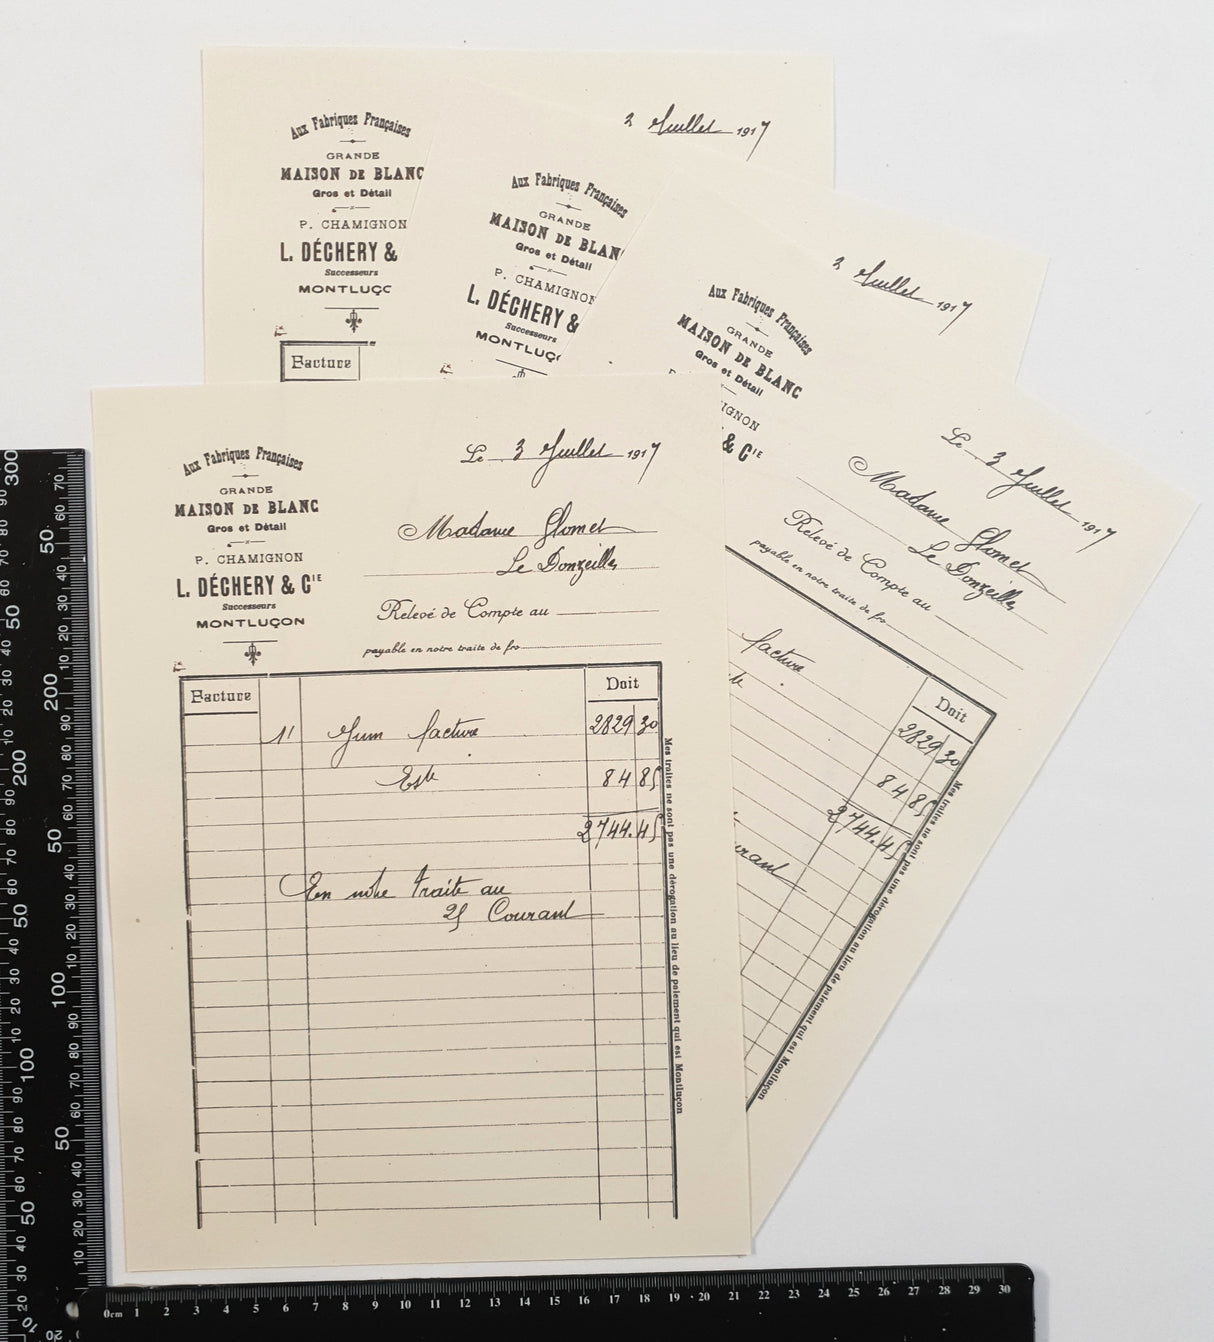 Aux Fabriques Françaises
GRANDE
MAISON DE BLANC
Gros et Détail
P. CHAMIGNON
L. DÉCHERY &
Successeurs
MONTLUÇO
Facture
2 Juillet 1917
Aux Fabriques Françaises
GRANDE
MAISON DE BLAN
Gros et Détail
P. CHAMIGNON
L. DÉCHERY &
Successeurs
MONTLUÇ
3 Juillet 1917
Aux Fabriques Françaises
GRANDE
MAISON DE BLANC
Gros et Détail
IGNON
& CIE
Le 3 Juillet 1917
Madame Glomet
Le Donzeille
Relevé de Compte au
payable en notre traite de frs
facture
Doit
2829 30
84 85
2744.45
ourant
Mes traites ne sont pas une dérogation au lieu de paiement qui est Montluçon
Aux Fabriques Françaises
GRANDE
MAISON DE BLANC
Gros et Détail
P. CHAMIGNON
L. DÉCHERY & CIE
Successeurs
MONTLUÇON
Le 3 Juillet 1917
Madame Glomet
Le Donzeille
Relevé de Compte au
payable en notre traite de frs
Facture Doit
11 Juin facture 2829 30
Este 84 85
2744.45
En notre traite au
25 Courant
Mes traites ne sont pas une dérogation au lieu de paiement qui est Montluçon
0cm 1 2 3 4 5 6 7 8 9 10 11 12 13 14 15 16 17 18 19 20 21 22 23 24 25 26 27 28 29 30